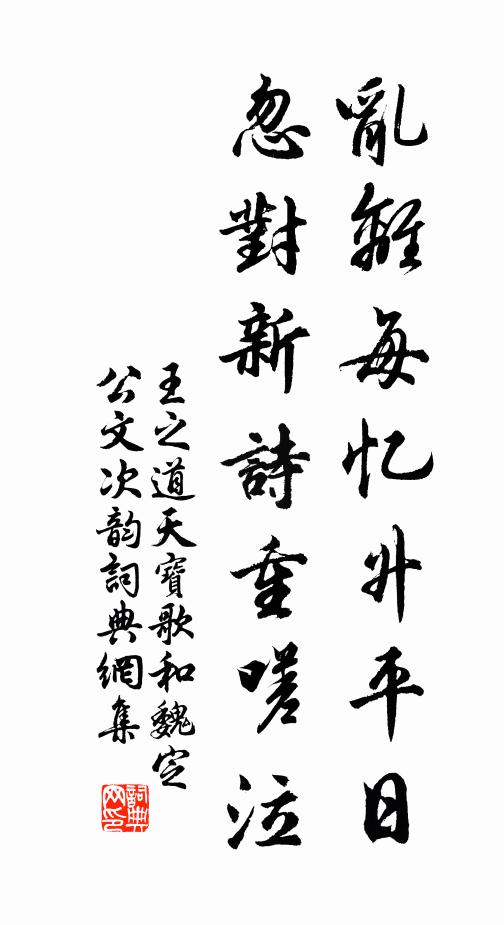 亂離每忆升平日
忽對新詩重嗟泣
王之道天寶歌和魏定
公文次韵詞典網集
詞典
网印